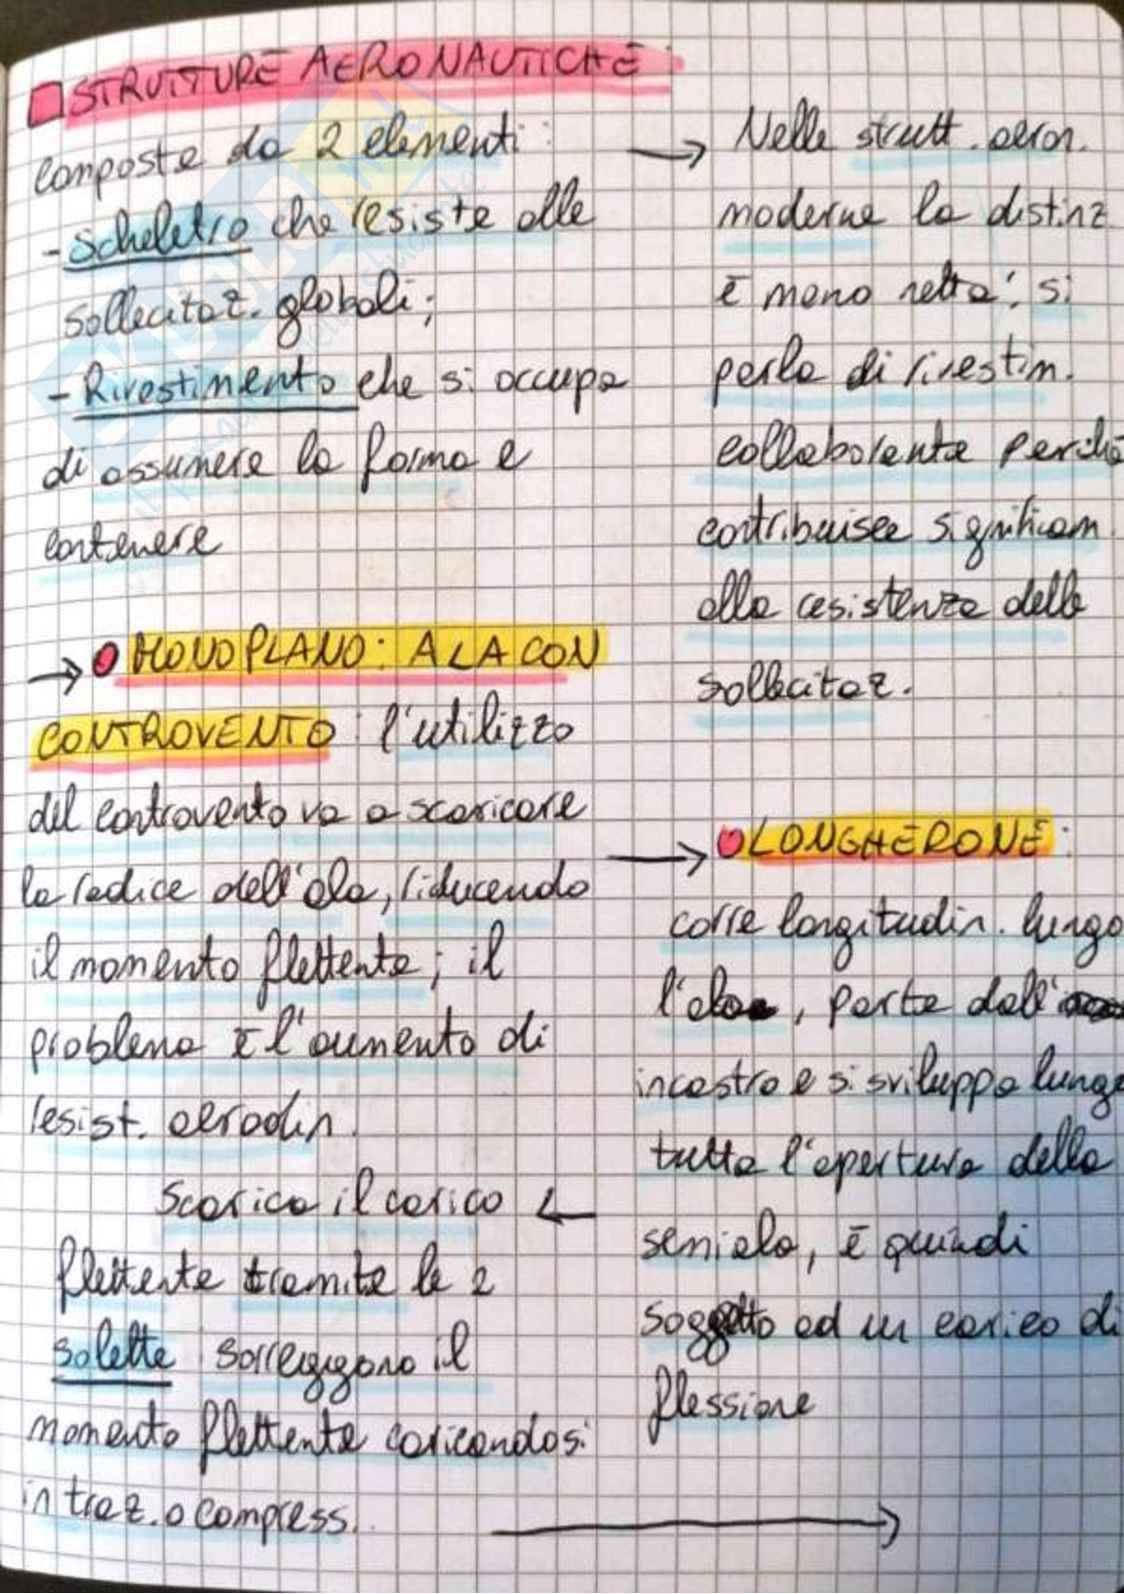 STRUTTURE AERONAUTICHE
composte da 2 elementi:
- Scheletro che resiste alle
sollecitaz. globali;
- Rivestimento che si occupa
di assumere la forma e
contenere
→ Nelle strutt. aeron.
moderne la distinz.
è meno netta: si
parla di rivestim.
collaborante perchè
contribuisce significam.
alla resistenza delle
sollecitaz.
→ MONOPLANO: ALA CON
CONTROVENTO: l'utilizzo
del controvento va a scaricare
la radice dell'ala, riducendo
il momento flettente; il
problema è l'aumento di
resist. aerodin.
→ LONGHERONE:
corre longitudin. lungo
l'ala, parte dall'
incastro e si sviluppa lungo
tutta l'apertura della
semiala, è quindi
soggetto ad un carico di
flessione
Scarica il carico ←
flettente tramite le 2
solette sorreggono il
momento flettente caricandosi
in traz. o compress. →